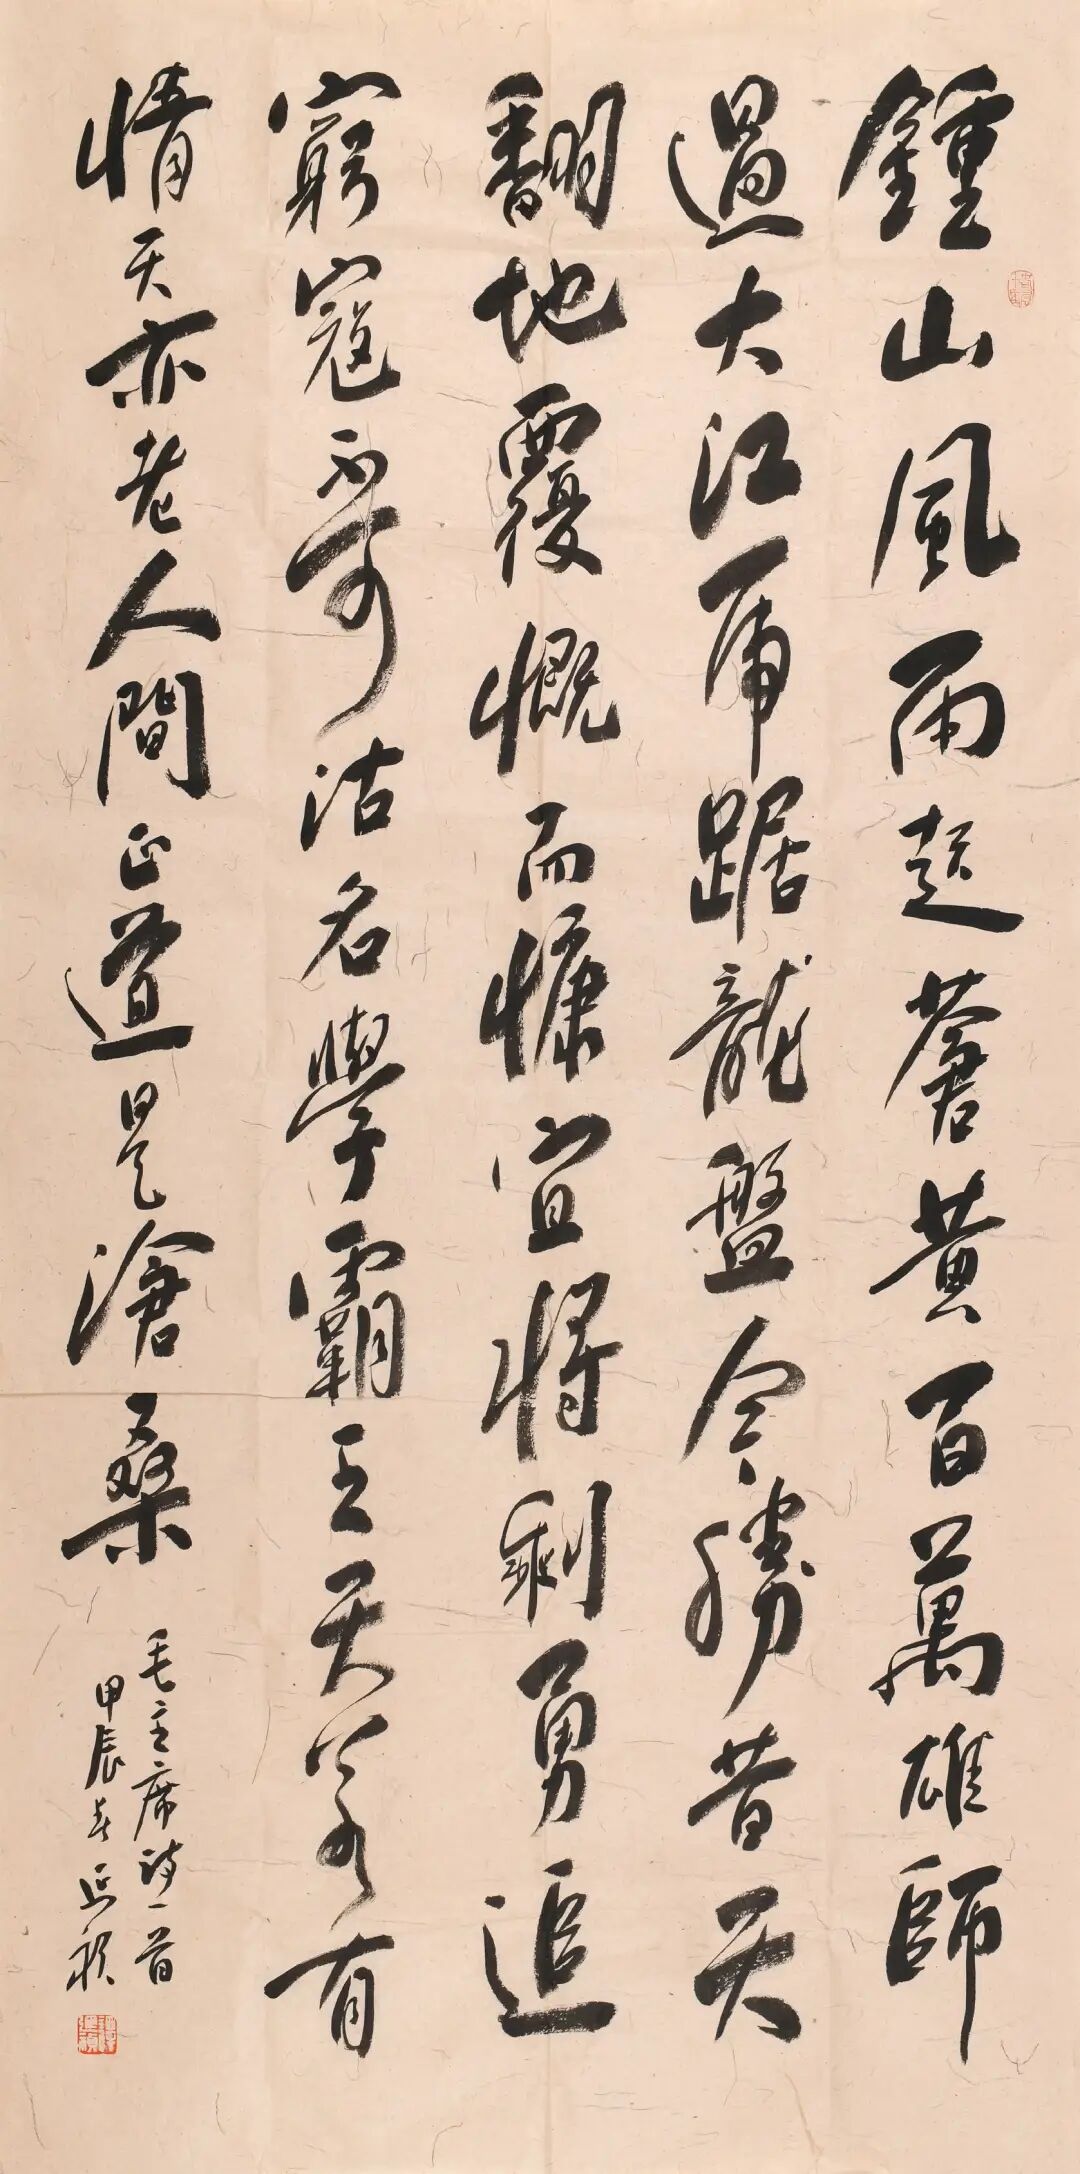 鍾山風雨起蒼黃百萬雄師
過大江虎踞龍盤今勝昔天
翻地覆慨而慷宜將剩勇追
窮寇不可沽名學霸王天若有
情天亦老人間正道是滄桑
毛主席詩一首
甲辰春